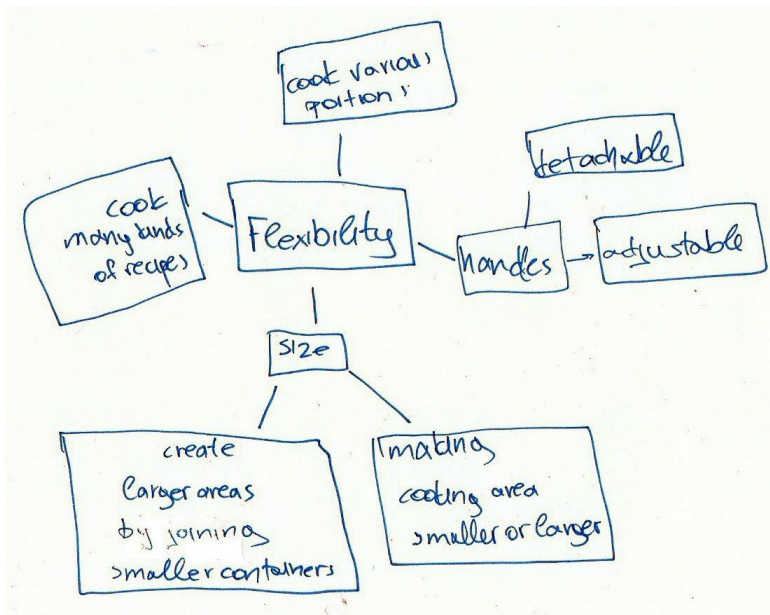 cook various
portions
detachable
cook
many kinds
of recipes
Flexibility
handles
adjustable
size
create
larger areas
by joining
smaller containers
making
cooking area
smaller or larger